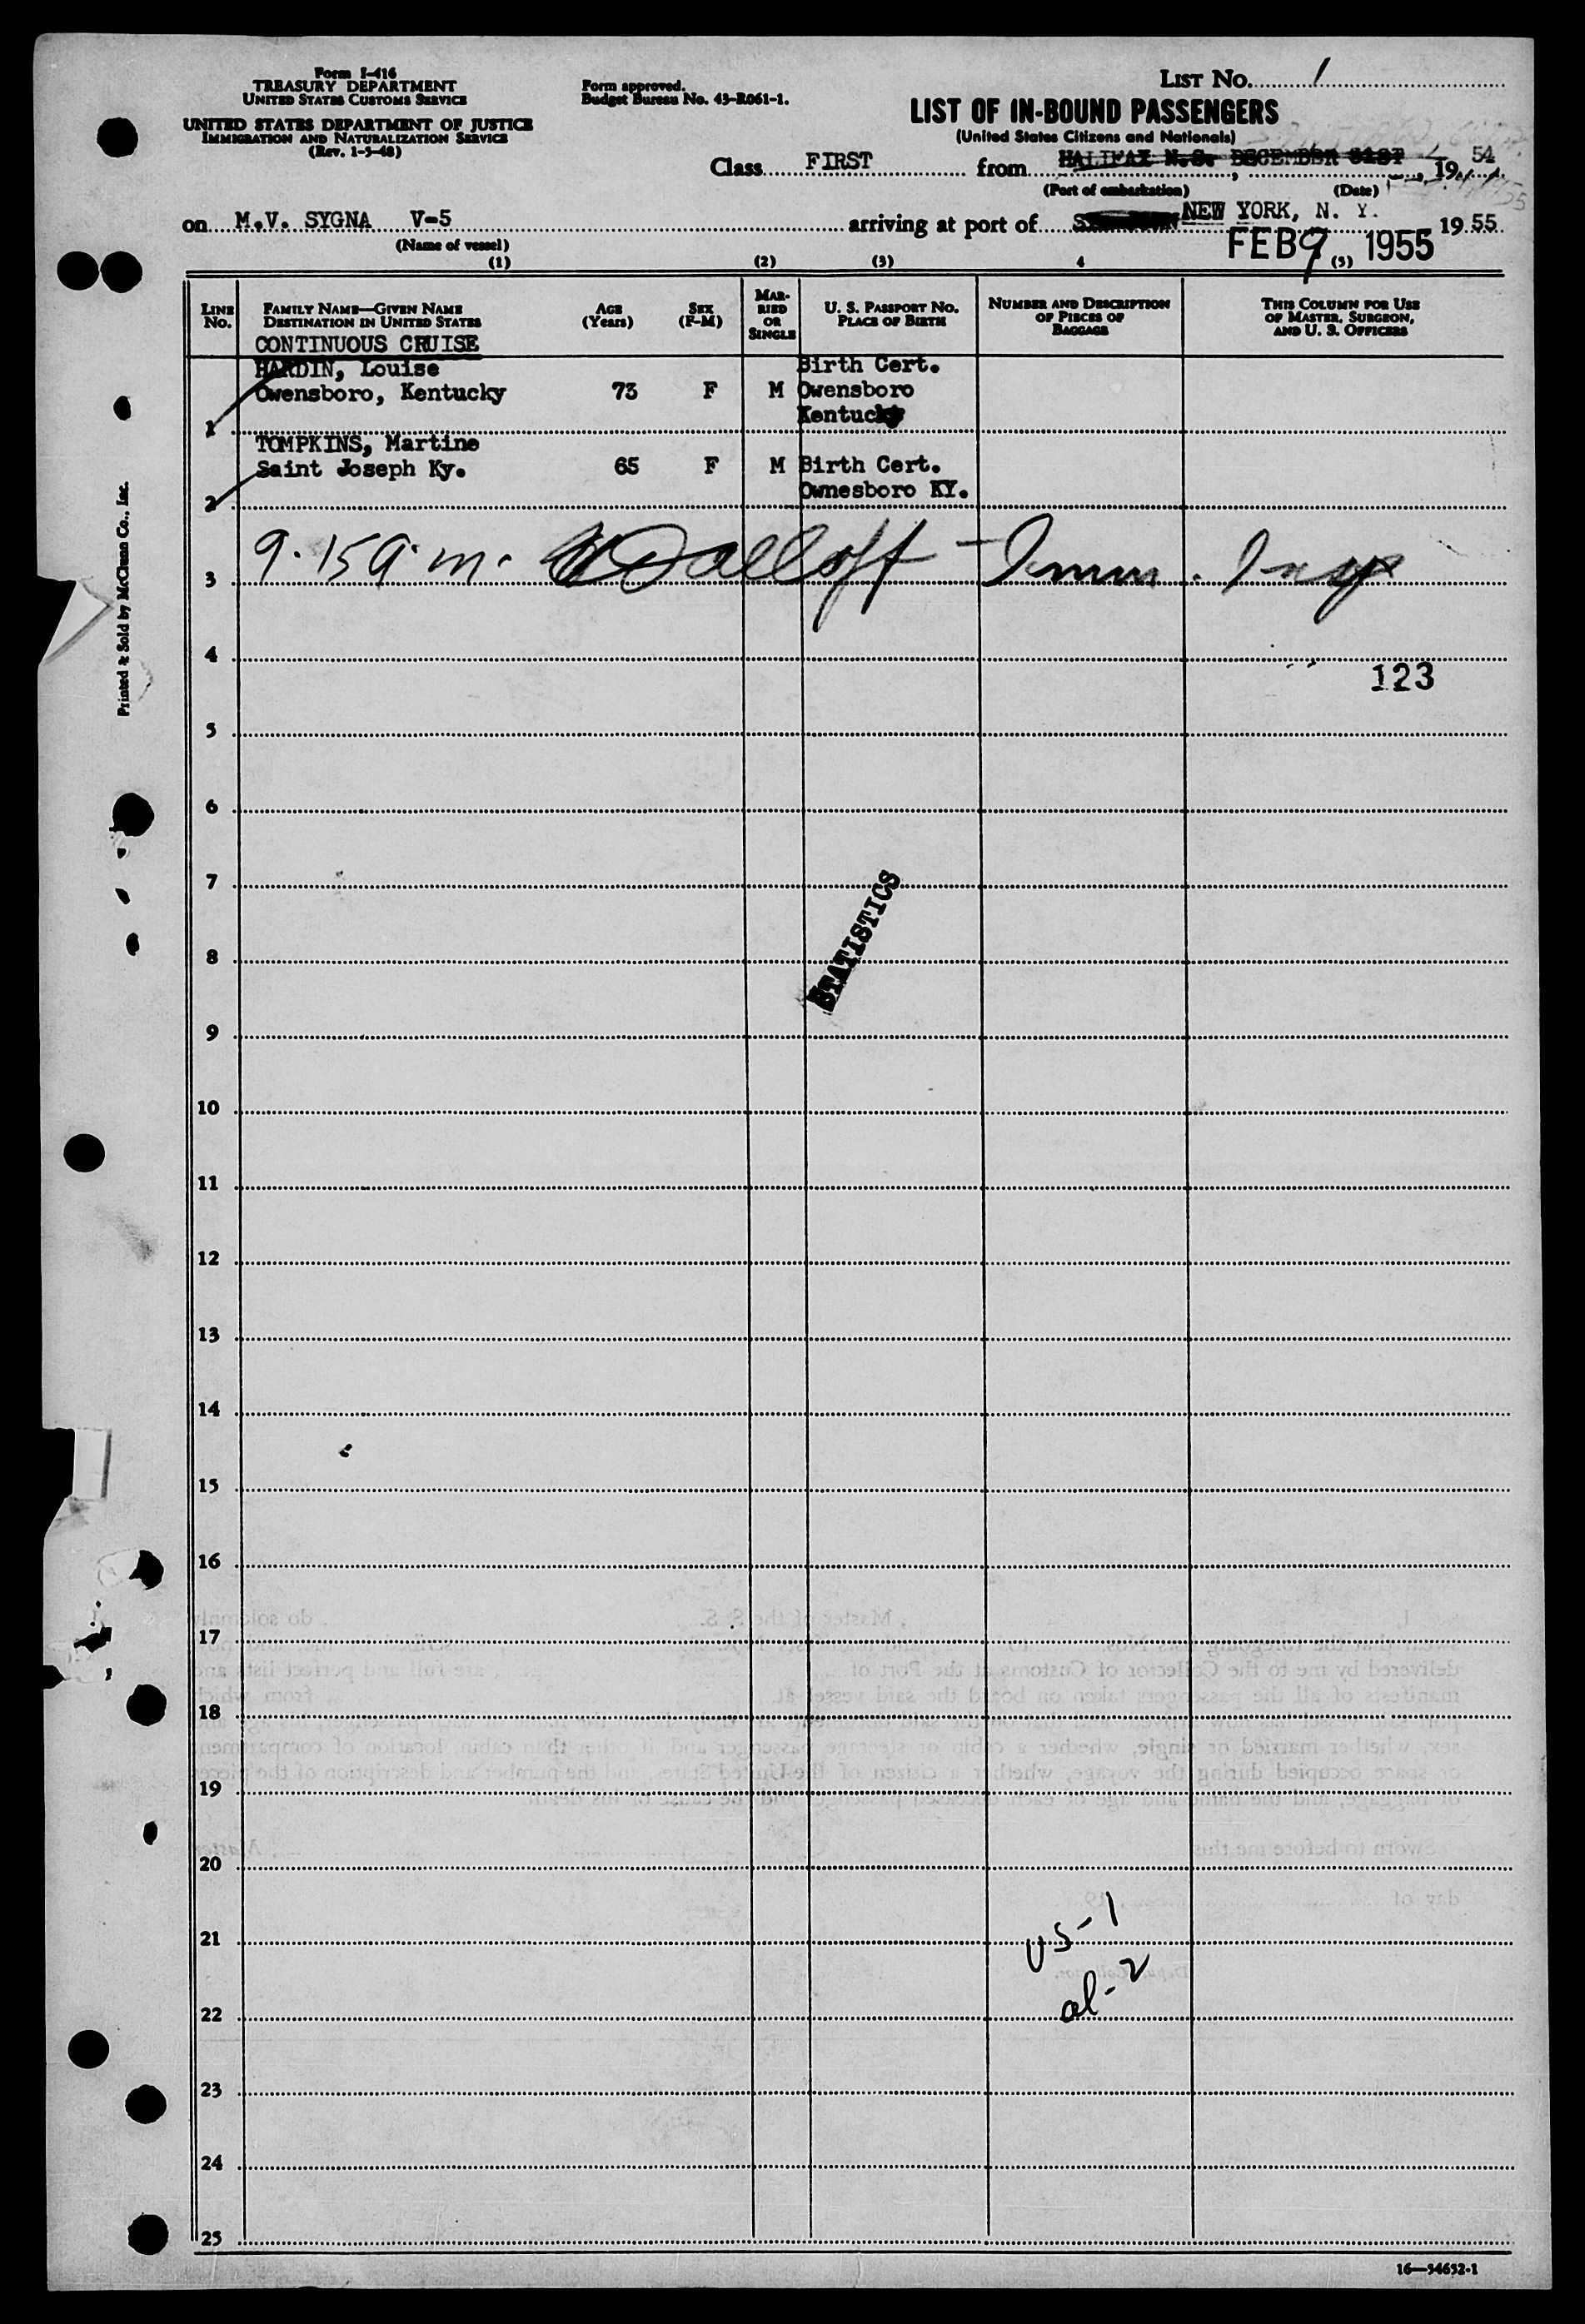 Form I-416
TREASURY DEPARTMENT
UNITED STATES CUSTOMS SERVICE
UNITED STATES DEPARTMENT OF JUSTICE
IMMIGRATION AND NATURALIZATION SERVICE
(Rev. 1-5-48)
Form approved.
Budget Bureau No. 43-R061-1.
LIST No. 1
LIST OF IN-BOUND PASSENGERS
(United States Citizens and Nationals)
Class FIRST from HALIFAX N.S. DECEMBER 31ST, 19 54
(Port of embarkation) (Date)
on M.V. SYGNA V-5 arriving at port of NEW YORK, N. Y. 19 55
(Name of vessel)
FEB 9 1955
(1) (2) (3) 4 (5)
LINE No.
FAMILY NAME—GIVEN NAME
DESTINATION IN UNITED STATES
AGE (Years)
SEX (F-M)
MARRIED OR SINGLE
U. S. PASSPORT NO.
PLACE OF BIRTH
NUMBER AND DESCRIPTION OF PIECES OF BAGGAGE
THIS COLUMN FOR USE OF MASTER, SURGEON, AND U. S. OFFICERS
CONTINUOUS CRUISE
HARDIN, Louise Birth Cert.
Owensboro, Kentucky 73 F M Owensboro
1 Kentucky
TOMPKINS, Martine
Saint Joseph Ky. 65 F M Birth Cert.
2 Ownesboro KY.
3 9.15 a.m. - Imm. Insp
4
123
5
6
7
STATISTICS
8
9
10
11
12
13
14
15
16
17
18
19
20
21 US-1
22 al-2
23
24
25
16—54652-1
Printed & Sold by McClunn Co., Inc.